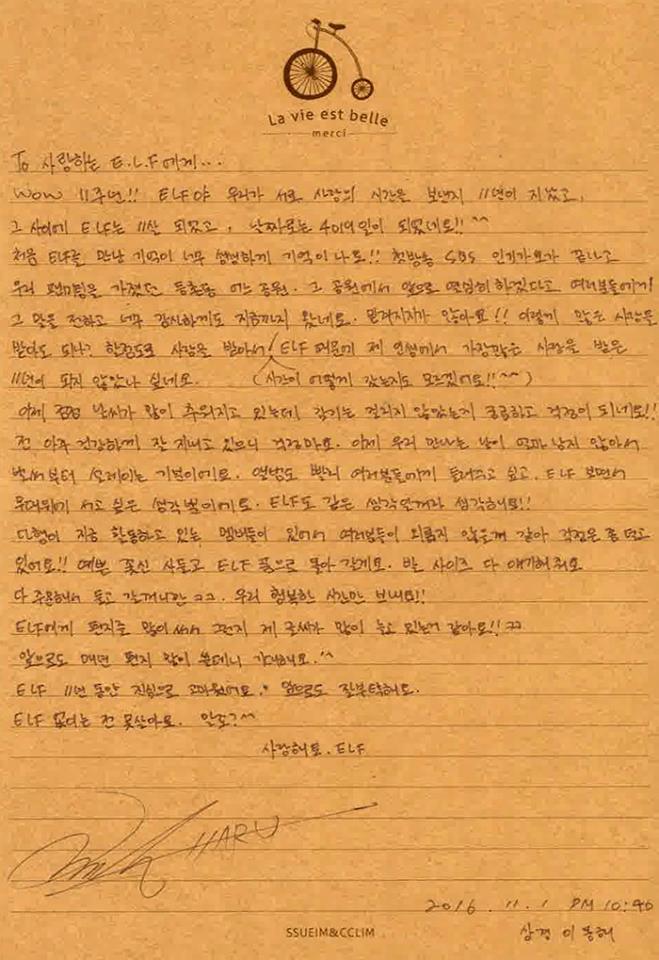 La vie est belle
merci
To 사랑하는 E.L.F에게...
WOW 11주년!! ELF야 우리가 서로 사랑의 시간을 보낸지 11년이 지났고,
그 사이에 ELF는 11살 되었고, 날짜로는 4019일이 되었네요!! ^^
처음 ELF를 만난 기억이 너무 생생하게 기억이 나요!! 첫방송 SBS 인기가요가 끝나고
우리 팬미팅을 가졌던 등촌동 어느 공원. 그 공원에서 앞으로 열심히 하겠다고 여러분들에게
그 말을 전하고 너무 감사하게도 지금까지 왔네요. 믿겨지지가 않아요!! 이렇게 많은 사랑을
받아도 되나? 할정도로 사랑을 받아서 ELF 때문에 제 인생에서 가장많은 사랑을 받은
11년이 되지 않았나 싶네요. (시간이 어떻게 갔는지도 모르겠어요!! ^^)
이제 점점 날씨가 많이 추워지고 있는데 감기는 걸리지 않았는지 궁금하고 걱정이 되네요!!
전 아주 건강하게 잘 지내고 있으니 걱정마요. 이제 우리 만나는 날이 얼마 남지 않아서
벌써부터 설레이는 기분이에요. 앨범도 빨리 여러분들에게 들려주고 싶고, ELF 보면서
무대위에 서고 싶은 생각뿐이에요. ELF도 같은 생각일꺼라 생각해요!!
다행이 지금 활동하고 있는 멤버들이 있어서 여러분들이 외롭지 않을꺼 같아 걱정은 좀 덜고
있어요!! 예쁜 꽃신 사들고 ELF 품으로 돌아 갈게요. 발 사이즈 다 얘기해줘요
다 주문해서 들고 갈꺼니깐 ㅋㅋ. 우리 행복한 시간만 보내요!!
ELF에게 편지를 많이 써서 그런지 제 글씨가 많이 늘고 있는거 같아요!! ㅋㅋ
앞으로도 매년 편지 많이 쓸테니 기대해요. ^^
ELF 11년 동안 진심으로 고마웠어요. 앞으로도 잘부탁해요.
ELF 없이는 전 못살아요. 알죠? ^^
사랑해요. ELF
HARU
2016. 11. 1 PM 10:40
상경 이동해
SSUEIM&CCLIM